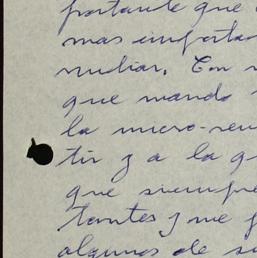 portante que
mas importa
mediar. Con
que mando
la micro-reu
tir y a la q
que siempre
tantes y me
algunos de su